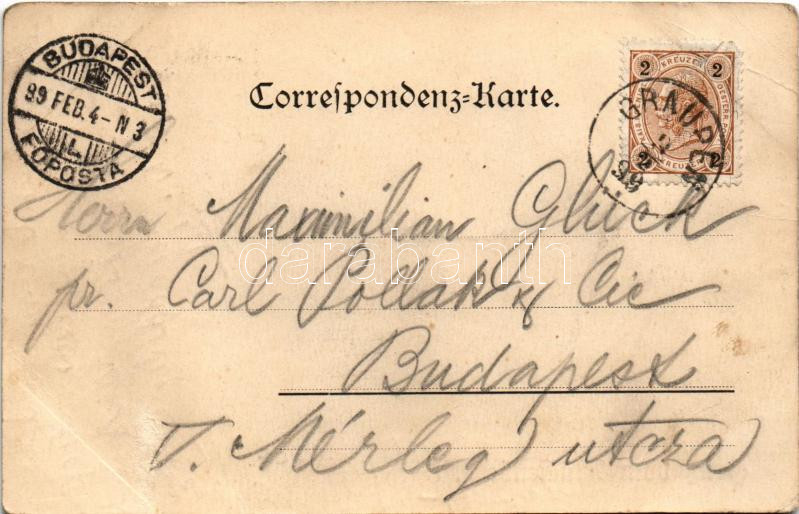 BUDAPEST
99 FEB. 4 - N 3
FŐPOSTA
Correspondenz-Karte.
2 KREUZER 2
2 KREUZER 2
GRAUPEN
99
Herrn Maximilian Glück
pr. Carl Pollak & Cie
darabanth
Budapest
V. Mérleg utcza